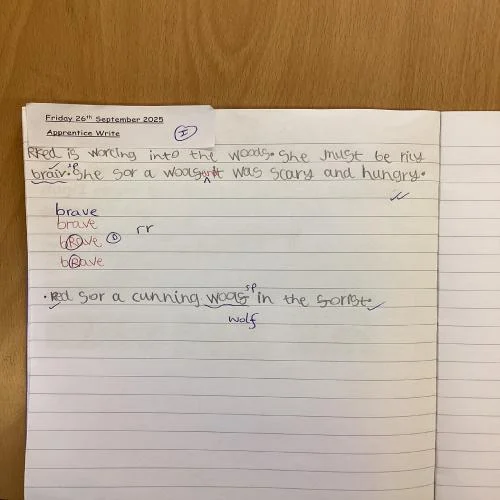 Friday 26th September 2025
Apprentice Write
I
RRed is worcing into the woods. She must be rily
sp
braiv. She sor a woolf it was scary and hungry.
brave
brave
bRave D rr
bRave
sp
. Red sor a cunning woolf in the forist.
wolf